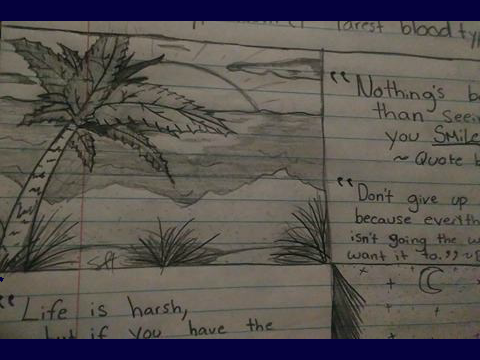 rarest blood ty
"Nothing's b
than seein
you SMILE
~ Quote b
"Don't give up
because everyth
isn't going the w
want it to."
"Life is harsh,
but if you have the